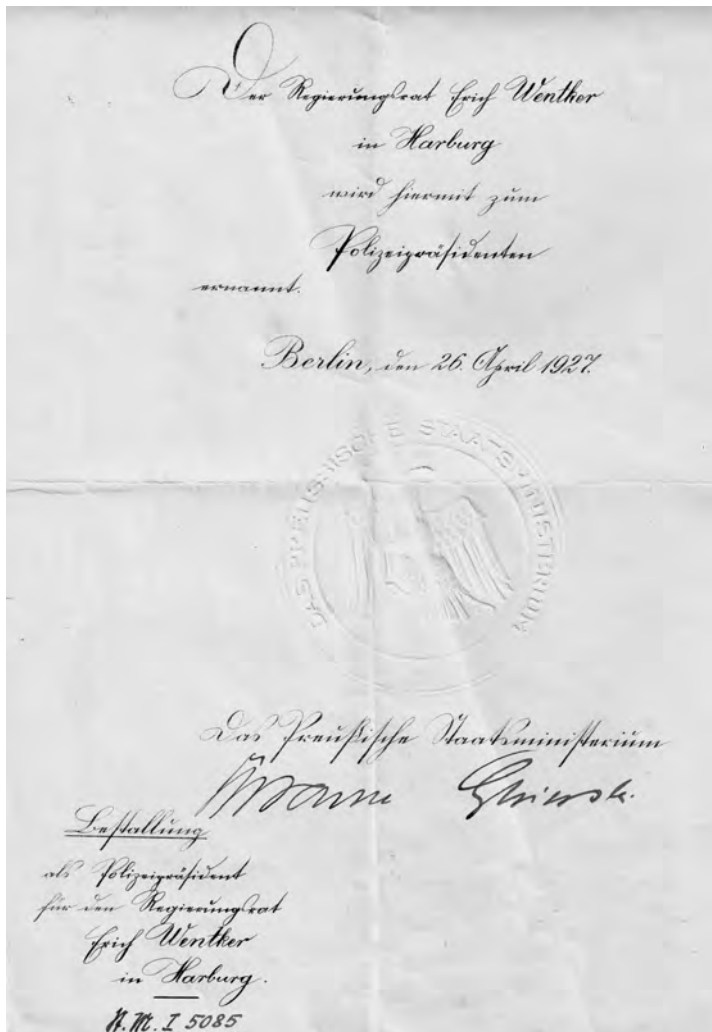 Der Regierungsrat Erich Wentker
in Harburg
wird hiermit zum
Polizeipräsidenten
ernannt.
Berlin, den 26. April 1927.
DAS PREUSSISCHE STAATSMINISTERIUM
Das Preußische Staatsministerium
Bestallung
als Polizeipräsident
für den Regierungsrat
Erich Wentker
in Harburg.
St. M. I 5085